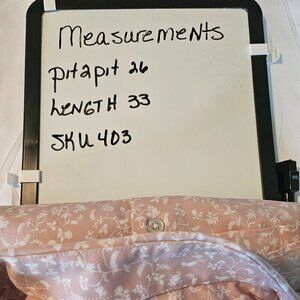 Measurements
pitapit 26
LENGTH 33
SKU 403